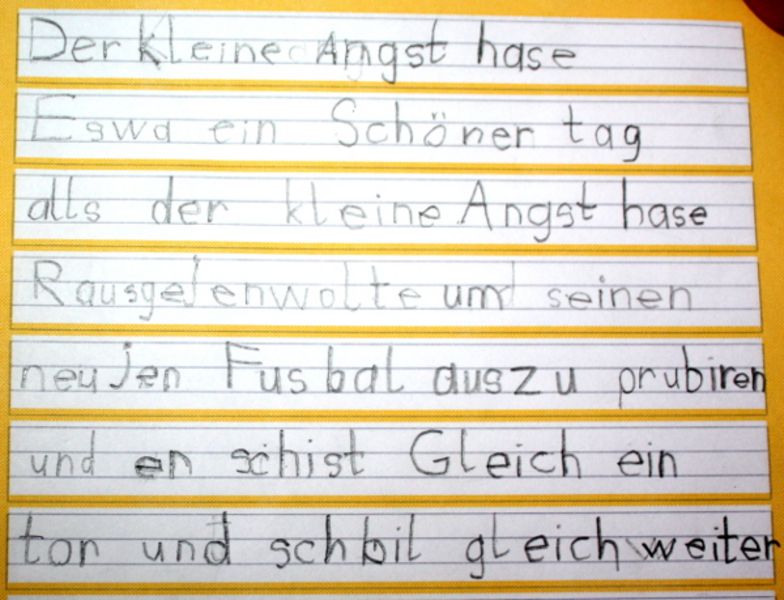 Der kleine Angst hase
Eswa ein Schöner tag
alls der kleine Angst hase
Rausgejenwolte und seinen
neujen Fusbal auszu prubiren
und er schist Gleich ein
tor und schbil gleich weiter